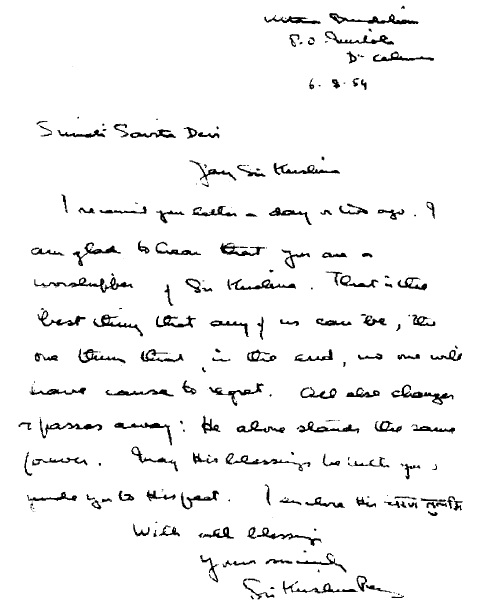 Uttar Brindaban
P.O. Mirtola
Dt Almora
6. 8. 54
Srimati Savita Devi
Jay Sri Krishna
I received your letter a day or two ago. I
am glad to hear that you are a
worshipper of Sri Krishna. That is the
best thing that any of us can be, the
one thing that, in the end, no one will
have cause to regret. All else changes
& passes away: He alone stands the same
forever. May His blessings be with you &
guide you to His feet. I enclose His
With all blessings
Yours sincerely
Sri Krishna Prem